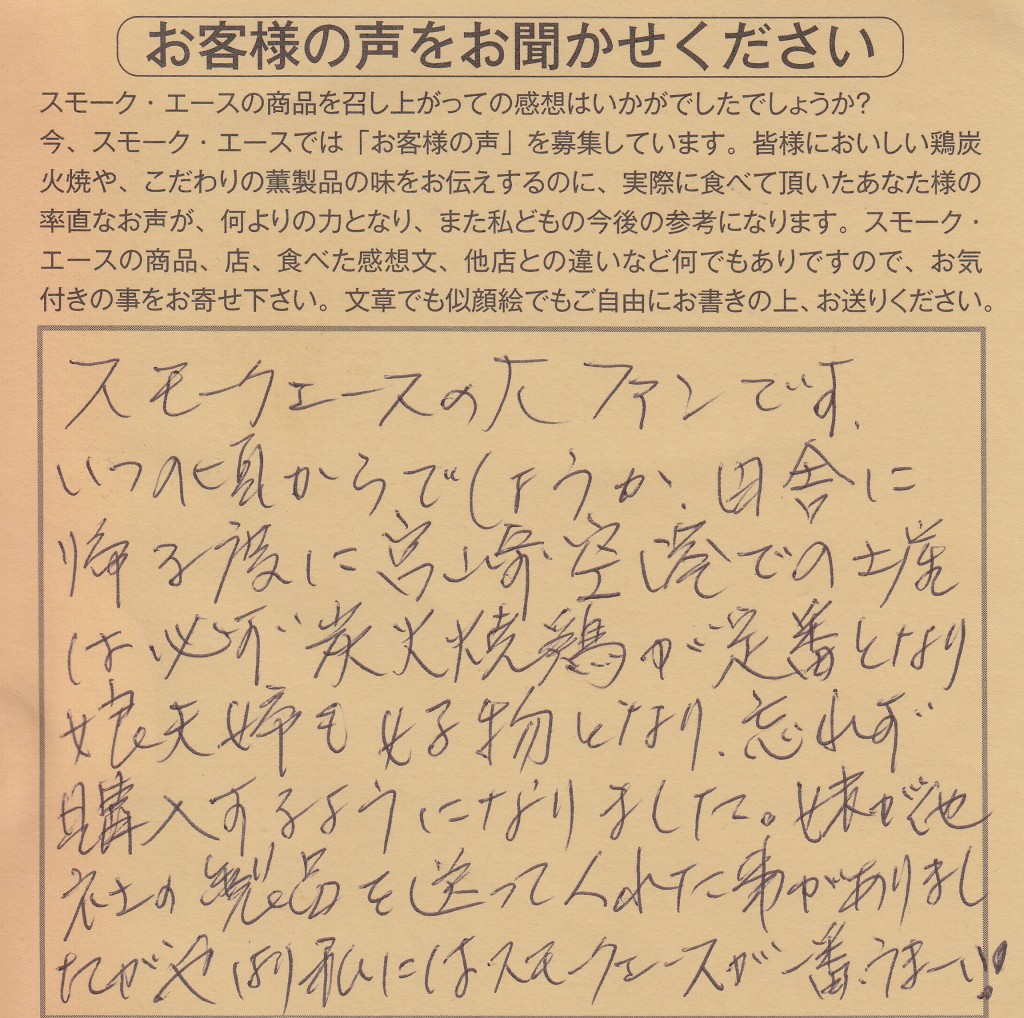 お客様の声をお聞かせください
スモーク・エースの商品を召し上がっての感想はいかがでしたでしょうか?
今、スモーク・エースでは「お客様の声」を募集しています。皆様においしい鶏炭
火焼や、こだわりの薫製品の味をお伝えするのに、実際に食べて頂いたあなた様の
率直なお声が、何よりの力となり、また私どもの今後の参考になります。スモーク・
エースの商品、店、食べた感想文、他店との違いなど何でもありですので、お気
付きの事をお寄せ下さい。文章でも似顔絵でもご自由にお書きの上、お送りください。
スモークエースの大ファンです.
いつの頃からでしょうか.田舎に
帰る度に宮崎空港での土産
は必ず炭火焼鶏が定番となり
娘夫婦も好物となり.忘れず
購入するようになりました。妹が他
社の製品を送ってくれた事がありまし
たがやはり私にはスモークエースが一番.うまーい!